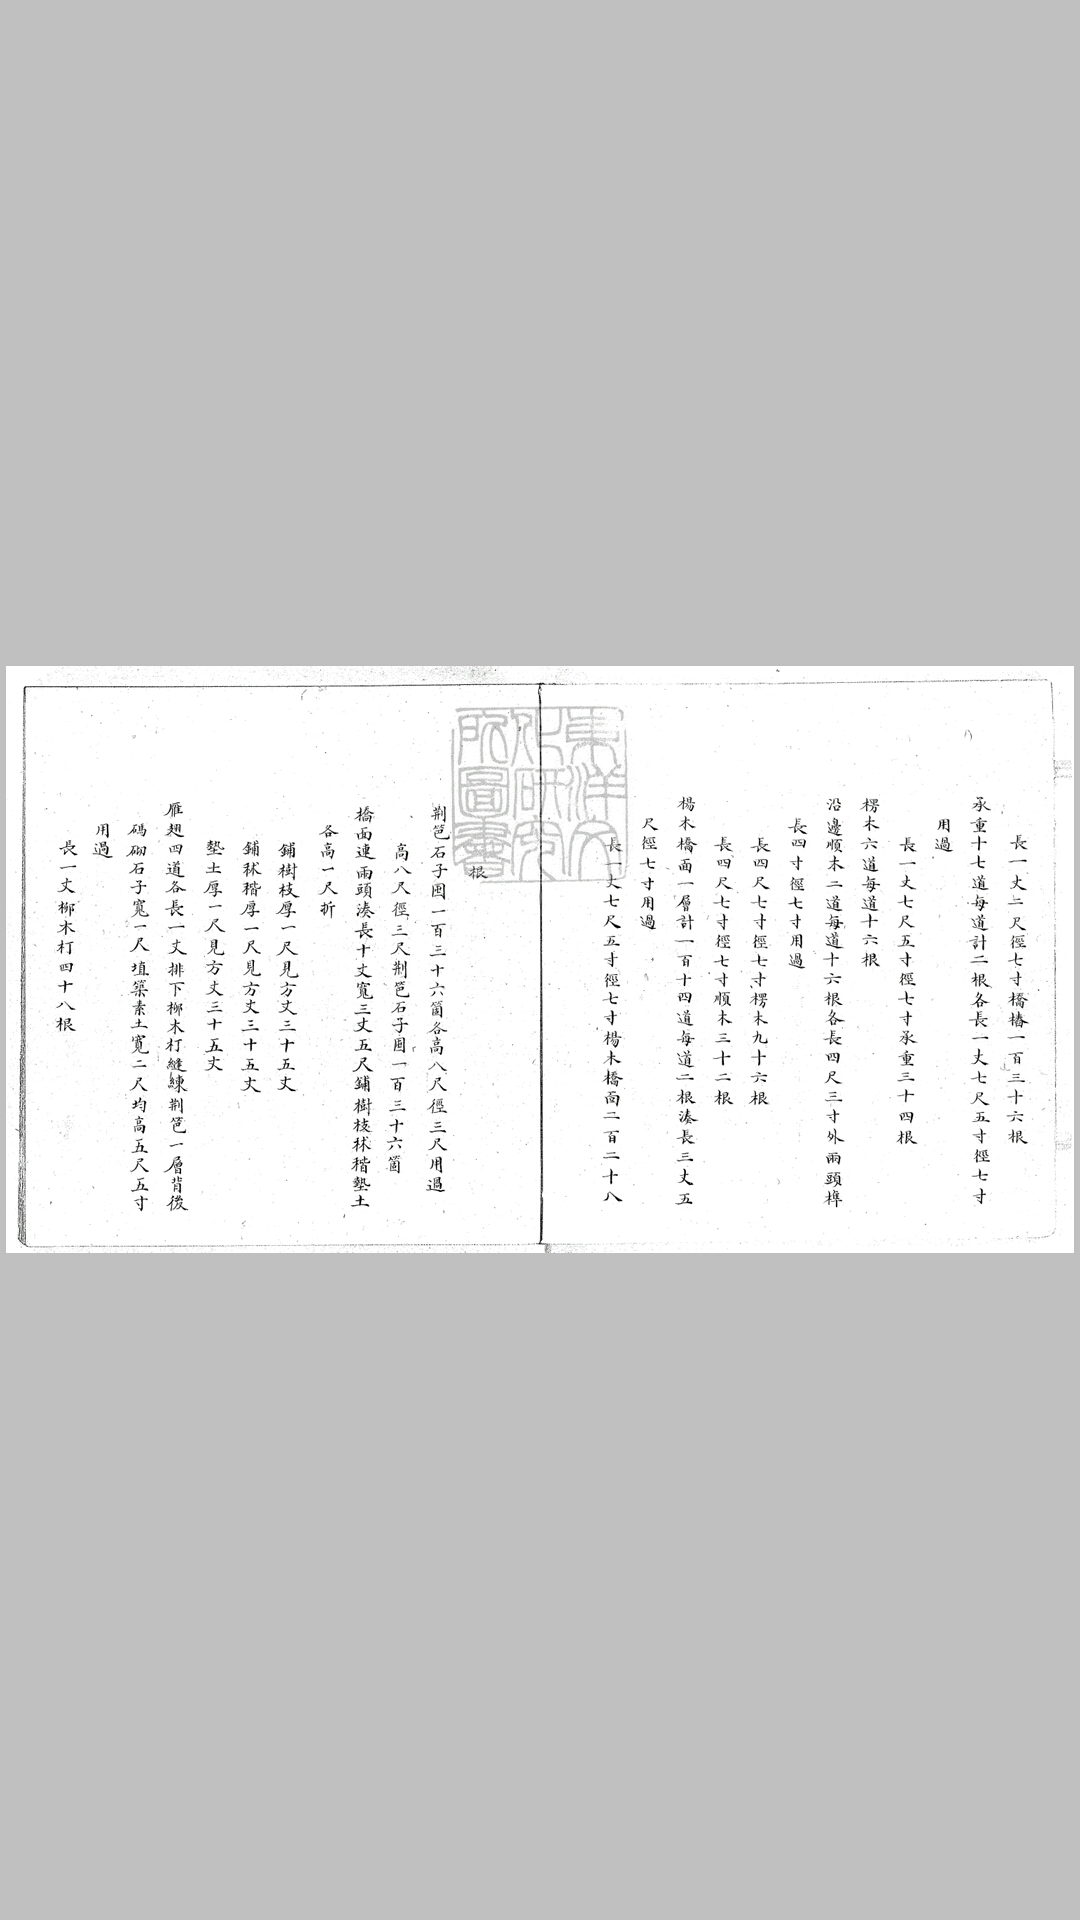 長一丈二尺徑七寸橋樁一百三十六根
承重十七道每道計二根各長一丈七尺五寸徑七寸
用過
長一丈七尺五寸徑七寸承重三十四根
楞木六道每道十六根
沿邊順木二道每道十六根各長四尺三寸外兩頭榫
長四寸徑七寸用過
長四尺七寸徑七寸楞木九十六根
長四尺七寸徑七寸順木三十二根
楊木橋面一層計一百十四道每道二根湊長三丈五
尺徑七寸用過
長一丈七尺五寸徑七寸楊木橋面二百二十八
根
荆笆石子囤一百三十六箇各高八尺徑三尺用過
高八尺徑三尺荆笆石子囤一百三十六箇
橋面連兩頭湊長十丈寬三丈五尺鋪樹枝秫稭墊土
各高一尺折
鋪樹枝厚一尺見方丈三十五丈
鋪秫稭厚一尺見方丈三十五丈
墊土厚一尺見方丈三十五丈
雁翅四道各長一丈排下柳木打縫練荆笆一層背後
碼砌石子寬一尺填築素土寬二尺均高五尺五寸
用過
長一丈柳木打四十八根
東洋文
化研究
所圖書